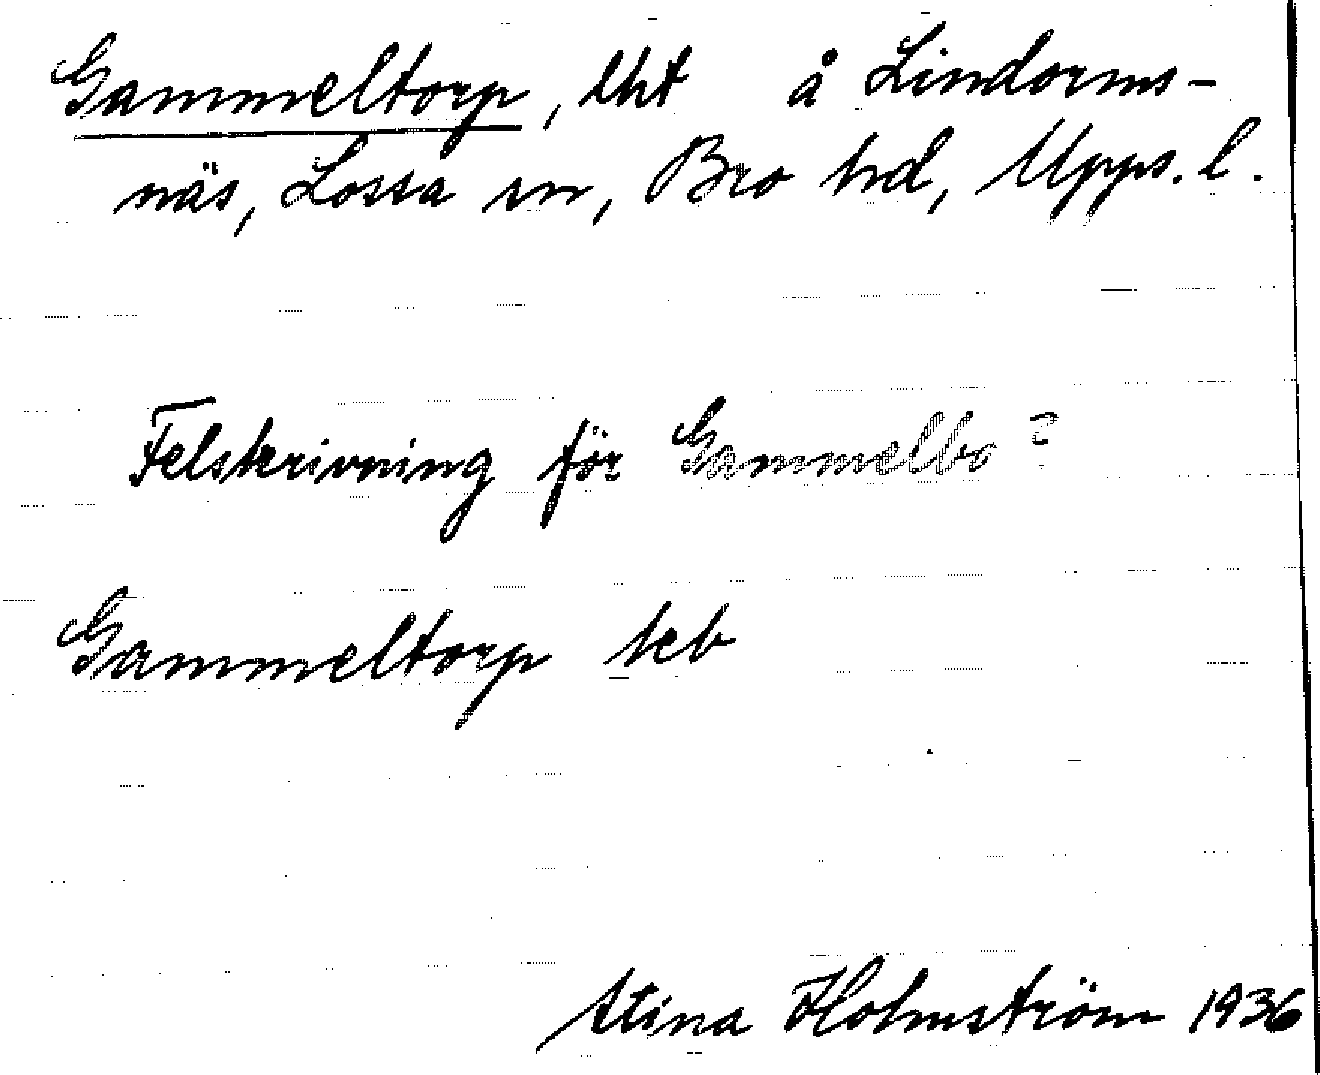 Gammeltorp, lht å Lindorms-
näs, Lossa sn, Bro hd, Upps. l.
Felskrivning för Gammelbo?
Gammeltorp keb
Stina Holmström 1936